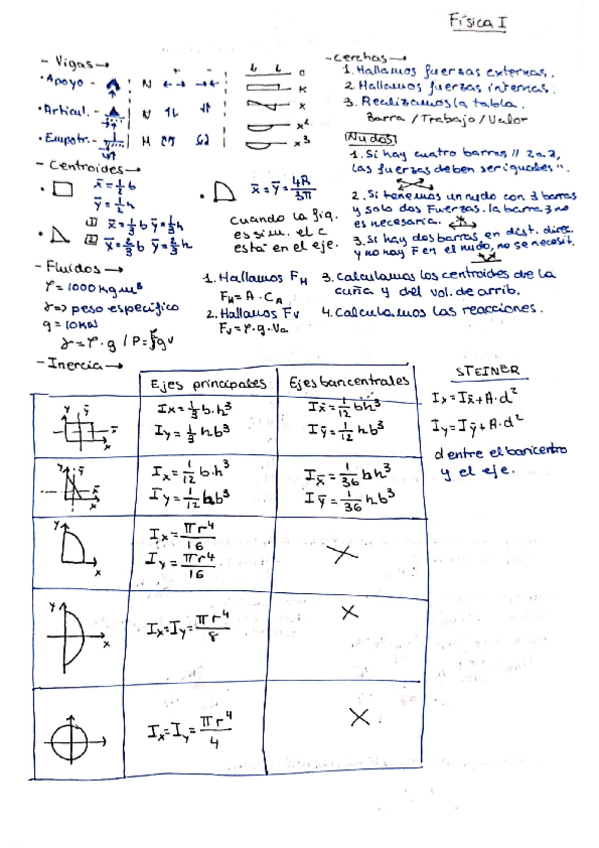 Física I
- Vigas →
+ -
• Apoyo -
N
• Articul. -
N
• Empotr. -
M
L L
0
K
x
x²
x³
- Cerchas →
1. Hallamos fuerzas externas.
2. Hallamos fuerzas internas.
3. Realizamos la tabla.
Barra / Trabajo / Valor
Nudos
1. Si hay cuatro barras // 2 a 2,
las fuerzas deben ser iguales ".
2. Si tenemos un nudo con 3 barras
y solo dos Fuerzas. la barra 3 no
es necesaria.
3. Si hay dos barras en dist. direc.
y no hay F en el nudo, no se necesit.
- Centroides →
x̄ = 1/2 b
ȳ = 1/2 h
① x̄ = 1/3 b ȳ = 1/3 h
② x̄ = 2/3 b ȳ = 2/3 h
x̄ = ȳ = 4R/3π
Cuando la fig.
es sim. el c
está en el eje.
- Fluidos →
ρ = 1000 kg m³
γ => peso específico
g = 10 KN
γ = ρ · g / P = ρgv
1. Hallamos F_H
F_H = A · C_A
2. Hallamos F_V
F_V = ρ · g · Va
3. Calculamos los centroides de la
cuña y del vol. de arrib.
4. Calculamos las reacciones.
- Inercia →
Ejes principales
Ejes baricentrales
y ȳ
x̄
x
Ix = 1/3 b · h³
Iy = 1/3 h b³
Ix̄ = 1/12 b h³
Iȳ = 1/12 h b³
y ȳ
x̄
x
Ix = 1/12 b · h³
Iy = 1/12 h b³
Ix̄ = 1/36 b h³
Iȳ = 1/36 h b³
y
x
Ix = π r⁴/16
Iy = π r⁴/16
y
x
Ix = Iy = π r⁴/8
Ix = Iy = π r⁴/4
STEINER
Ix = Ix̄ + A · d²
Iy = Iȳ + A · d²
d entre el baricentro
y el eje.